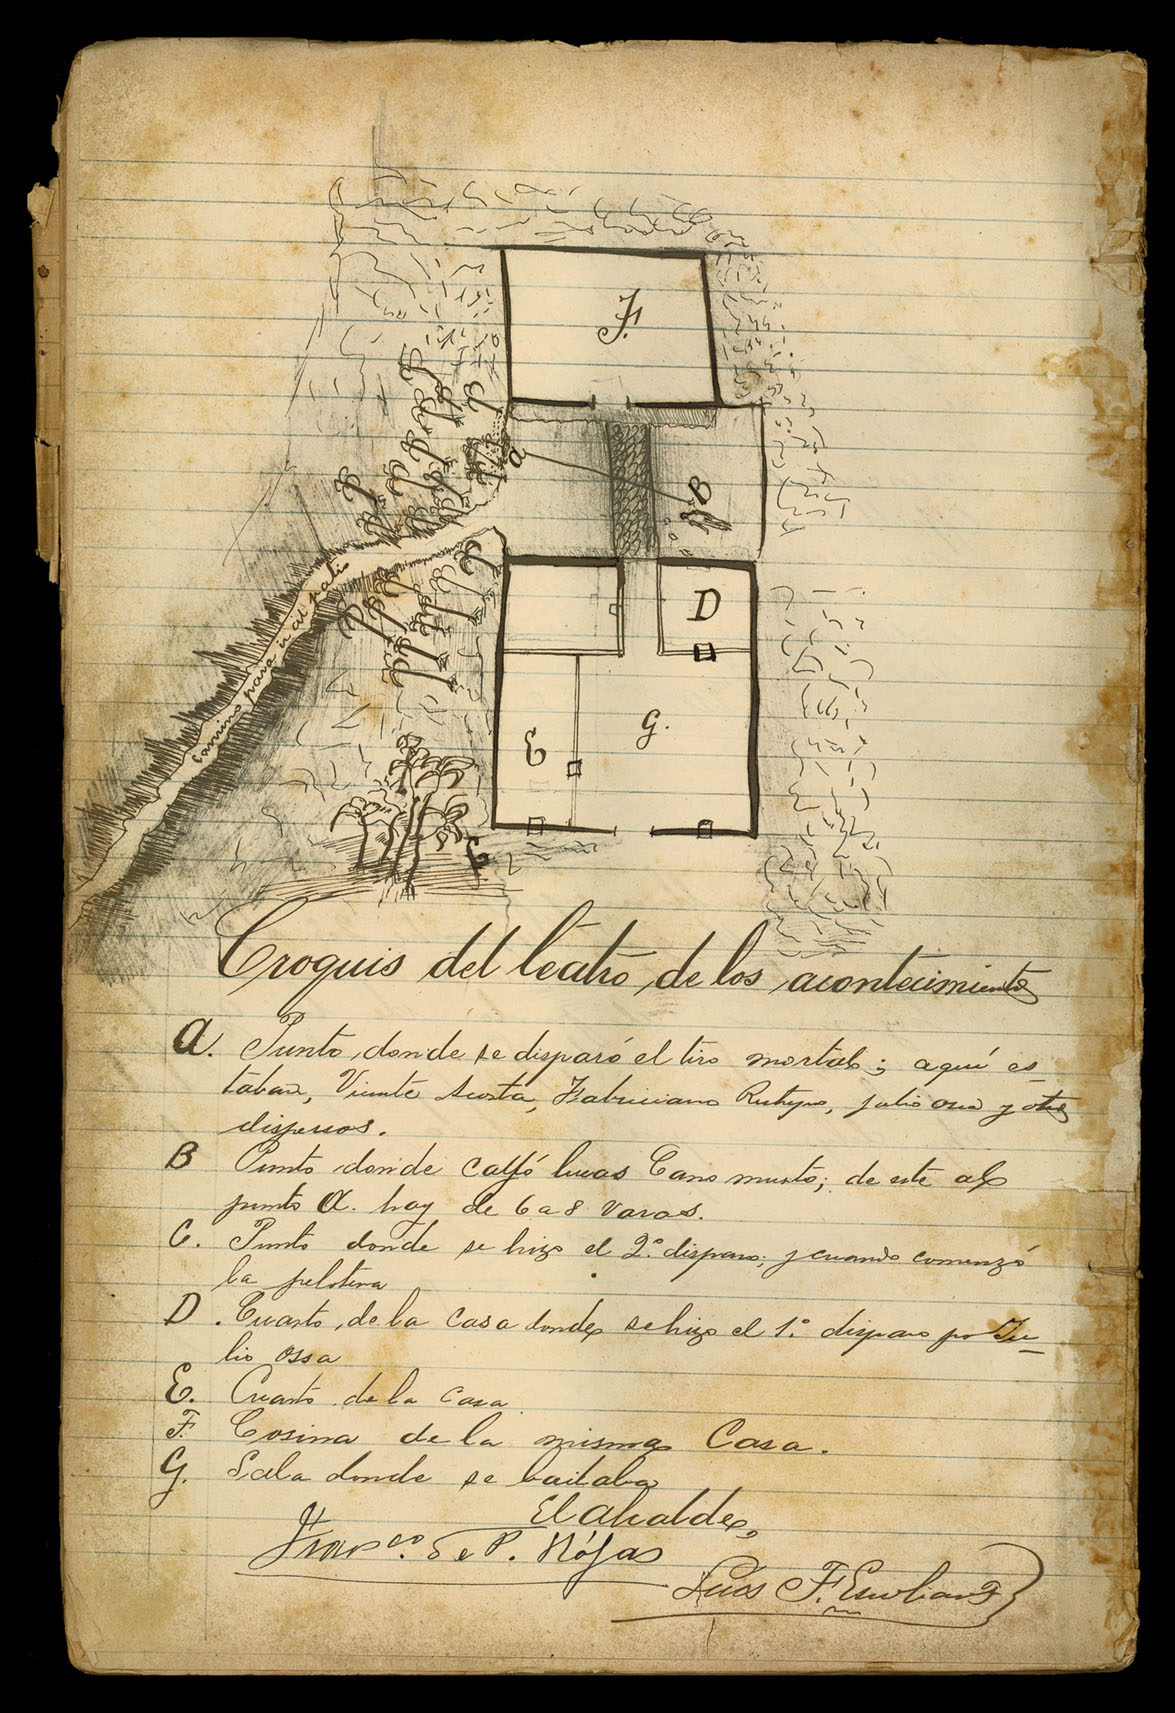 F.
a
B
D
G.
E
C
Camino para ir al patio
Croquis del teatro de los acontecimientos
a. Punto donde se disparó el tiro mortal; aquí es_
taban, Vicente Acosta, Fabriciano, Julio Osa y otros
dispersos.
B Punto donde calló lucas Cano muerto; de este al
punto a. hay de 6 a 8 varas.
C. Punto donde se hizo el 2.º disparo; y cuando comenzó
la pelotera
D. Cuarto de la casa donde se hizo el 1.º disparo por Ju_
lio Ossa
E. Cuarto de la casa
F Cosina de la misma Casa.
G. Sala donde se bailaba
El alcalde,
Franco. de P. Rójas
Luis F.